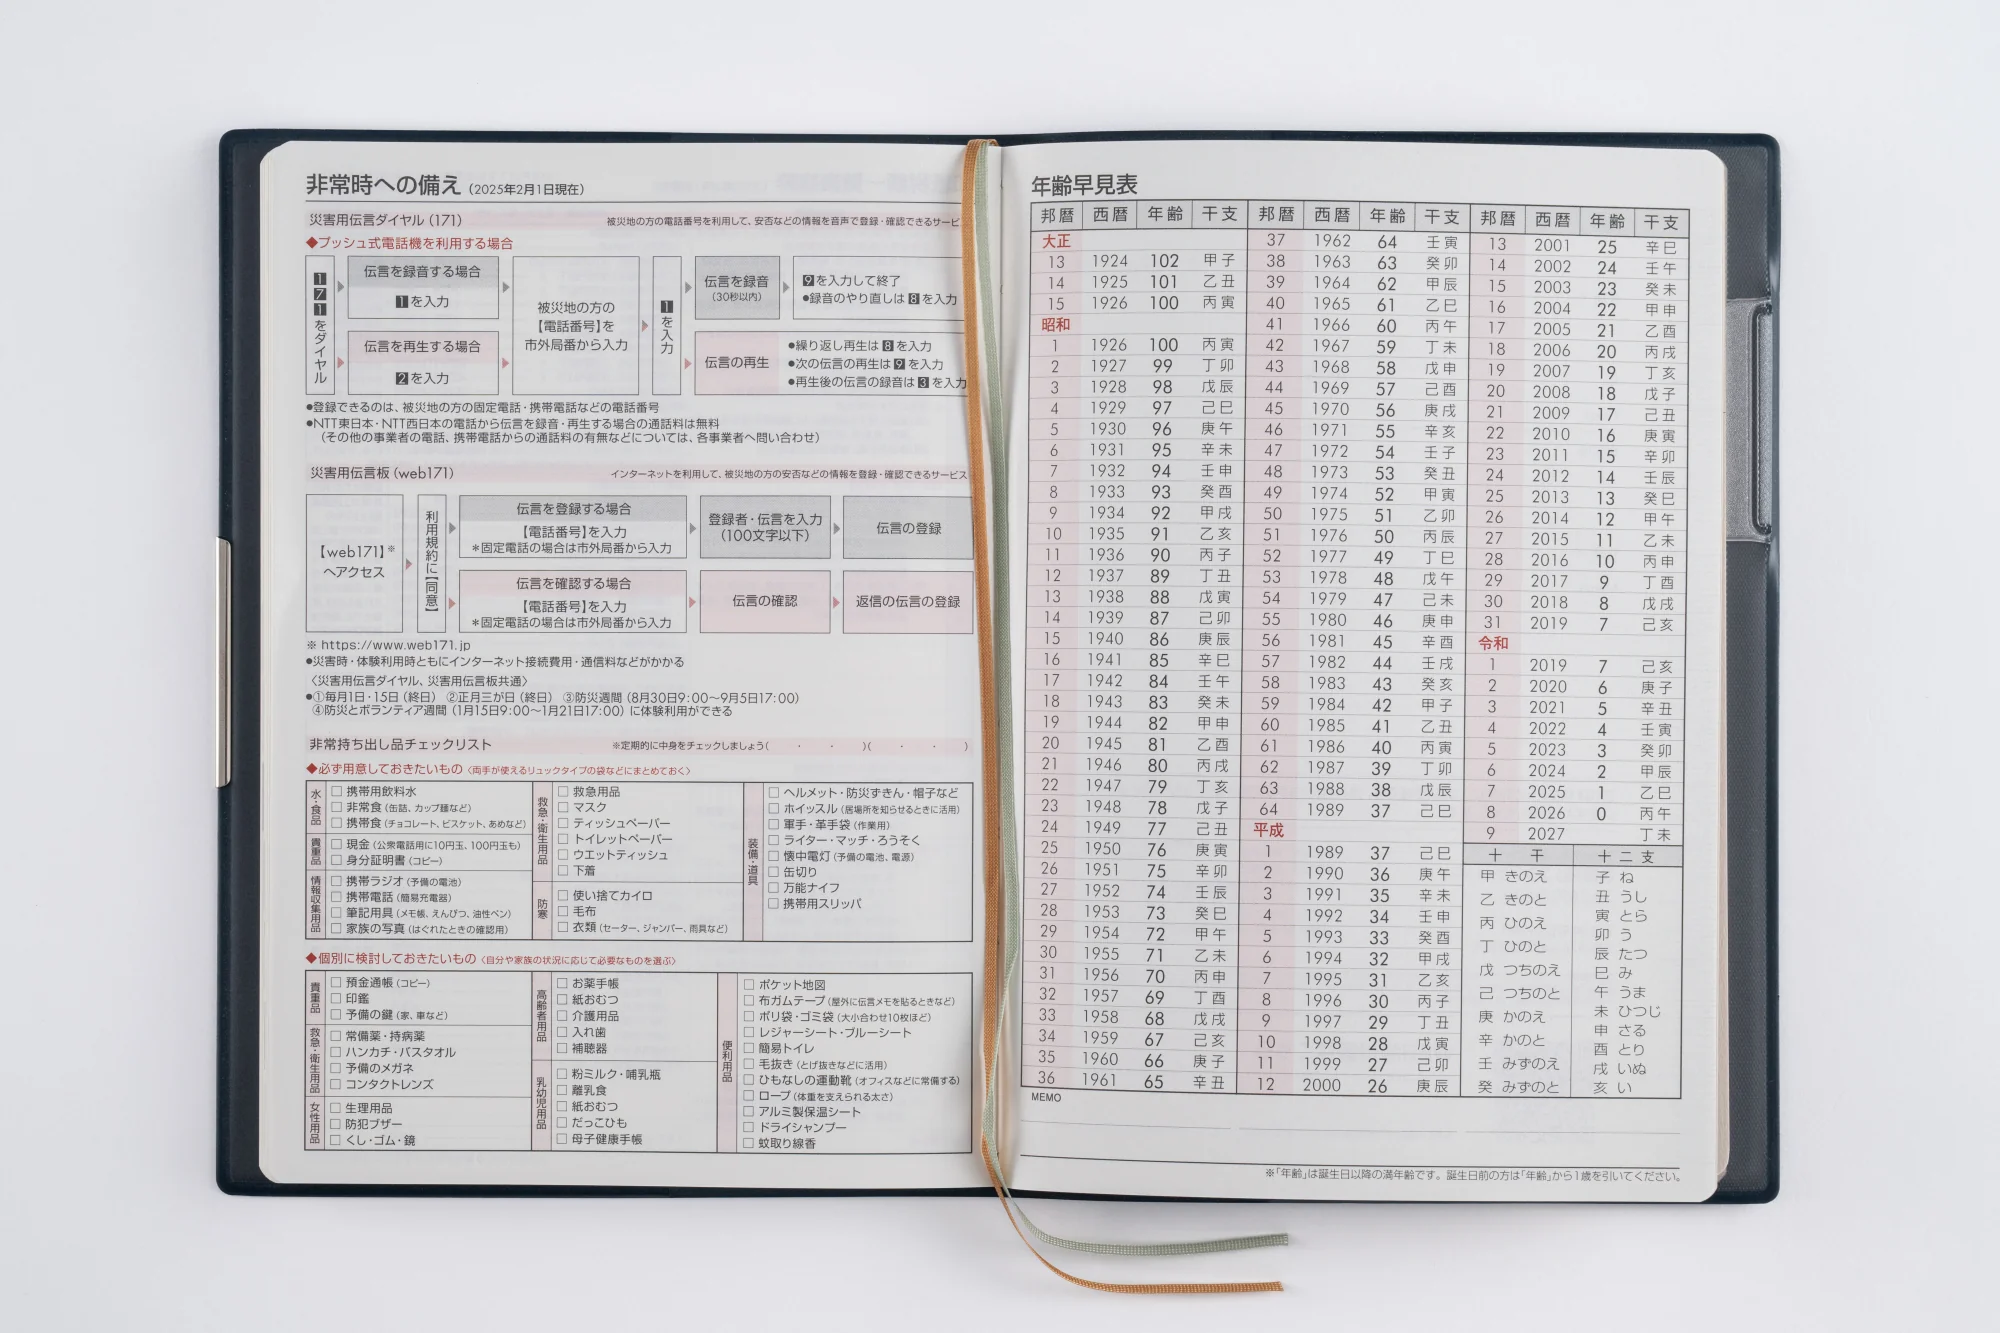 非常時への備え（2025年2月1日現在）
災害用伝言ダイヤル（171） 被災地の方の電話番号を利用して、安否などの情報を音声で登録・確認できるサービ
◆プッシュ式電話機を利用する場合
171をダイヤル
伝言を録音する場合
1を入力
伝言を再生する場合
2を入力
被災地の方の
【電話番号】を
市外局番から入力
1を入力
伝言を録音
（30秒以内）
9を入力して終了
●録音のやり直しは8を入力
伝言の再生
●繰り返し再生は8を入力
●次の伝言の再生は9を入力
●再生後の伝言の録音は3を入力
●登録できるのは、被災地の方の固定電話・携帯電話などの電話番号
●NTT東日本・NTT西日本の電話から伝言を録音・再生する場合の通話料は無料
（その他の事業者の電話、携帯電話からの通話料の有無などについては、各事業者へ問い合わせ）
災害用伝言板（web171） インターネットを利用して、被災地の方の安否などの情報を登録・確認できるサービス
【web171】※
へアクセス
利用規約に【同意】
伝言を登録する場合
【電話番号】を入力
＊固定電話の場合は市外局番から入力
登録者・伝言を入力
（100文字以下）
伝言の登録
伝言を確認する場合
【電話番号】を入力
＊固定電話の場合は市外局番から入力
伝言の確認
返信の伝言の登録
※ https://www.web171.jp
●災害時・体験利用時ともにインターネット接続費用・通信料などがかかる
〈災害用伝言ダイヤル、災害用伝言板共通〉
●①毎月1日・15日（終日） ②正月三が日（終日） ③防災週間（8月30日9:00〜9月5日17:00）
④防災とボランティア週間（1月15日9:00〜1月21日17:00）に体験利用ができる
非常持ち出し品チェックリスト ※定期的に中身をチェックしましょう（ ・ ・ ）（ ・ ・ ）
◆必ず用意しておきたいもの〈両手が使えるリュックタイプの袋などにまとめておく〉
水・食品
□ 携帯用飲料水
□ 非常食（缶詰、カップ麺など）
□ 携帯食（チョコレート、ビスケット、あめなど）
貴重品
□ 現金（公衆電話用に10円玉、100円玉も）
□ 身分証明書（コピー）
情報収集用品
□ 携帯ラジオ（予備の電池）
□ 携帯電話（簡易充電器）
□ 筆記用具（メモ帳、えんぴつ、油性ペン）
□ 家族の写真（はぐれたときの確認用）
救急・衛生用品
□ 救急用品
□ マスク
□ ティッシュペーパー
□ トイレットペーパー
□ ウエットティッシュ
□ 下着
防寒
□ 使い捨てカイロ
□ 毛布
□ 衣類（セーター、ジャンパー、雨具など）
装備・道具
□ ヘルメット・防災ずきん・帽子など
□ ホイッスル（居場所を知らせるときに活用）
□ 軍手・革手袋（作業用）
□ ライター・マッチ・ろうそく
□ 懐中電灯（予備の電池、電源）
□ 缶切り
□ 万能ナイフ
□ 携帯用スリッパ
◆個別に検討しておきたいもの〈自分や家族の状況に応じて必要なものを選ぶ〉
貴重品
□ 預金通帳（コピー）
□ 印鑑
□ 予備の鍵（家、車など）
救急・衛生用品
□ 常備薬・持病薬
□ ハンカチ・バスタオル
□ 予備のメガネ
□ コンタクトレンズ
女性用品
□ 生理用品
□ 防犯ブザー
□ くし・ゴム・鏡
高齢者用品
□ お薬手帳
□ 紙おむつ
□ 介護用品
□ 入れ歯
□ 補聴器
乳幼児用品
□ 粉ミルク・哺乳瓶
□ 離乳食
□ 紙おむつ
□ だっこひも
□ 母子健康手帳
便利用品
□ ポケット地図
□ 布ガムテープ（屋外に伝言メモを貼るときなど）
□ ポリ袋・ゴミ袋（大小合わせ10枚ほど）
□ レジャーシート・ブルーシート
□ 簡易トイレ
□ 毛抜き（とげ抜きなどに活用）
□ ひもなしの運動靴（オフィスなどに常備する）
□ ロープ（体重を支えられる太さ）
□ アルミ製保温シート
□ ドライシャンプー
□ 蚊取り線香
年齢早見表
邦暦 西暦 年齢 干支
大正
13 1924 102 甲子
14 1925 101 乙丑
15 1926 100 丙寅
昭和
1 1926 100 丙寅
2 1927 99 丁卯
3 1928 98 戊辰
4 1929 97 己巳
5 1930 96 庚午
6 1931 95 辛未
7 1932 94 壬申
8 1933 93 癸酉
9 1934 92 甲戌
10 1935 91 乙亥
11 1936 90 丙子
12 1937 89 丁丑
13 1938 88 戊寅
14 1939 87 己卯
15 1940 86 庚辰
16 1941 85 辛巳
17 1942 84 壬午
18 1943 83 癸未
19 1944 82 甲申
20 1945 81 乙酉
21 1946 80 丙戌
22 1947 79 丁亥
23 1948 78 戊子
24 1949 77 己丑
25 1950 76 庚寅
26 1951 75 辛卯
27 1952 74 壬辰
28 1953 73 癸巳
29 1954 72 甲午
30 1955 71 乙未
31 1956 70 丙申
32 1957 69 丁酉
33 1958 68 戊戌
34 1959 67 己亥
35 1960 66 庚子
36 1961 65 辛丑
邦暦 西暦 年齢 干支
37 1962 64 壬寅
38 1963 63 癸卯
39 1964 62 甲辰
40 1965 61 乙巳
41 1966 60 丙午
42 1967 59 丁未
43 1968 58 戊申
44 1969 57 己酉
45 1970 56 庚戌
46 1971 55 辛亥
47 1972 54 壬子
48 1973 53 癸丑
49 1974 52 甲寅
50 1975 51 乙卯
51 1976 50 丙辰
52 1977 49 丁巳
53 1978 48 戊午
54 1979 47 己未
55 1980 46 庚申
56 1981 45 辛酉
57 1982 44 壬戌
58 1983 43 癸亥
59 1984 42 甲子
60 1985 41 乙丑
61 1986 40 丙寅
62 1987 39 丁卯
63 1988 38 戊辰
64 1989 37 己巳
平成
1 1989 37 己巳
2 1990 36 庚午
3 1991 35 辛未
4 1992 34 壬申
5 1993 33 癸酉
6 1994 32 甲戌
7 1995 31 乙亥
8 1996 30 丙子
9 1997 29 丁丑
10 1998 28 戊寅
11 1999 27 己卯
12 2000 26 庚辰
邦暦 西暦 年齢 干支
13 2001 25 辛巳
14 2002 24 壬午
15 2003 23 癸未
16 2004 22 甲申
17 2005 21 乙酉
18 2006 20 丙戌
19 2007 19 丁亥
20 2008 18 戊子
21 2009 17 己丑
22 2010 16 庚寅
23 2011 15 辛卯
24 2012 14 壬辰
25 2013 13 癸巳
26 2014 12 甲午
27 2015 11 乙未
28 2016 10 丙申
29 2017 9 丁酉
30 2018 8 戊戌
31 2019 7 己亥
令和
1 2019 7 己亥
2 2020 6 庚子
3 2021 5 辛丑
4 2022 4 壬寅
5 2023 3 癸卯
6 2024 2 甲辰
7 2025 1 乙巳
8 2026 0 丙午
9 2027 丁未
十干
甲 きのえ
乙 きのと
丙 ひのえ
丁 ひのと
戊 つちのえ
己 つちのと
庚 かのえ
辛 かのと
壬 みずのえ
癸 みずのと
十二支
子 ね
丑 うし
寅 とら
卯 う
辰 たつ
巳 み
午 うま
未 ひつじ
申 さる
酉 とり
戌 いぬ
亥 い
MEMO
※「年齢」は誕生日以降の満年齢です。誕生日前の方は「年齢」から1歳を引いてください。